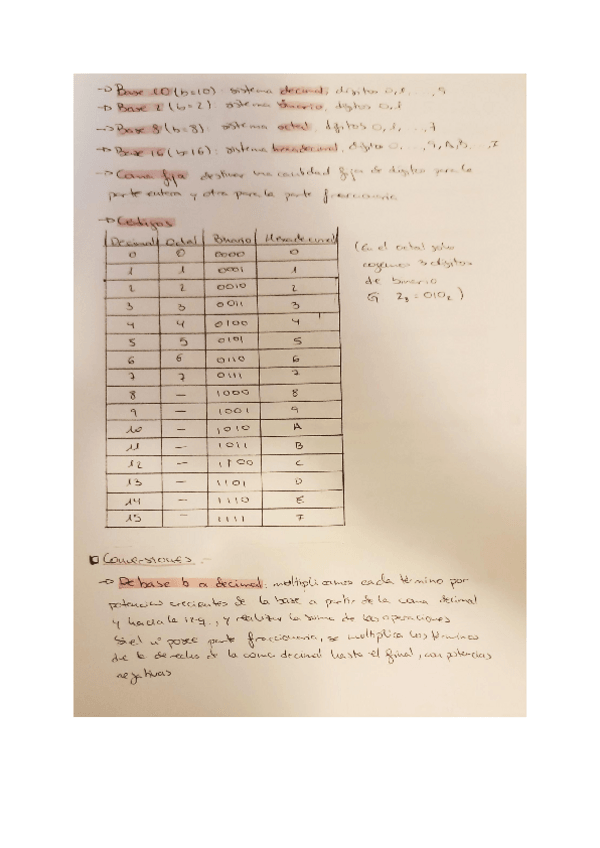 → Base 10 (b=10): sistema decimal, dígitos 0,1,...,9
→ Base 2 (b=2): sistema binario, dígitos 0,1
→ Base 8 (b=8): sistema octal, dígitos 0,1,...,7
→ Base 16 (b=16): sistema hexadecimal, dígitos 0,...,9,A,B,...,F
→ Coma fija: destinar una cantidad fija de dígitos para la
parte entera y otra para la parte fraccionaria
→ Códigos
Decimal Octal Binario Hexadecimal
0 0 0000 0
1 1 0001 1
2 2 0010 2
3 3 0011 3
4 4 0100 4
5 5 0101 5
6 6 0110 6
7 7 0111 7
8 — 1000 8
9 — 1001 9
10 — 1010 A
11 — 1011 B
12 — 1100 C
13 — 1101 D
14 — 1110 E
15 — 1111 F
(En el octal solo
cogemos 3 dígitos
de binario
2₈ = 010₂)
Conversiones.-
→ De base b a decimal: multiplicamos cada término por
potencias crecientes de la base a partir de la coma decimal
y hacia la izq., y realizar la suma de las operaciones
Si el nº posee parte fraccionaria, se multiplica los términos
de la derecha de la coma decimal hasta el final, con potencias
negativas